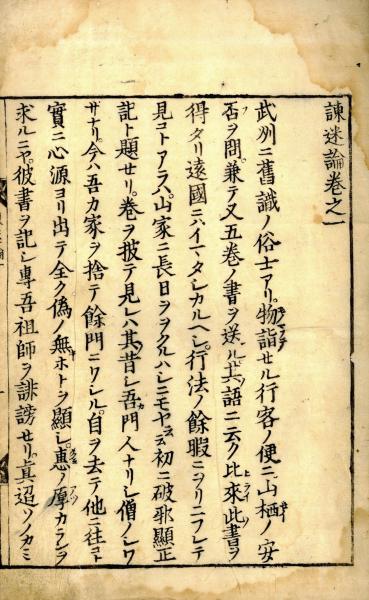 諌迷論卷之一
武州ニ舊識ノ俗士アリ物詣セル行客ノ便ニ山栖ノ安
否ヲ問兼テ又五卷ノ書ヲ送ル其語ニ云ク比來此書ヲ
得タリ遠國ニハイマタシカルヘシ行法ノ餘暇ニヲリニフレテ
見コトアラハ山家ニ長日ヲヲクルハシニモヤト云初ニ破邪顯正
記ト題セリ卷ヲ披テ見レハ其昔シ吾門人ナリシ僧ノシワ
ザナリ今ハ吾カ家ヲ捨テ餘門ニワシル自ヲ去テ他ニ往コト
實ニ心源ヨリ出テ全ク偽ノ無ホトヲ顯シ惠ノ厚カランヲ
求ルニヤ彼書ヲ記シ專吾祖師ヲ誹謗セリ真迢ソノカミ